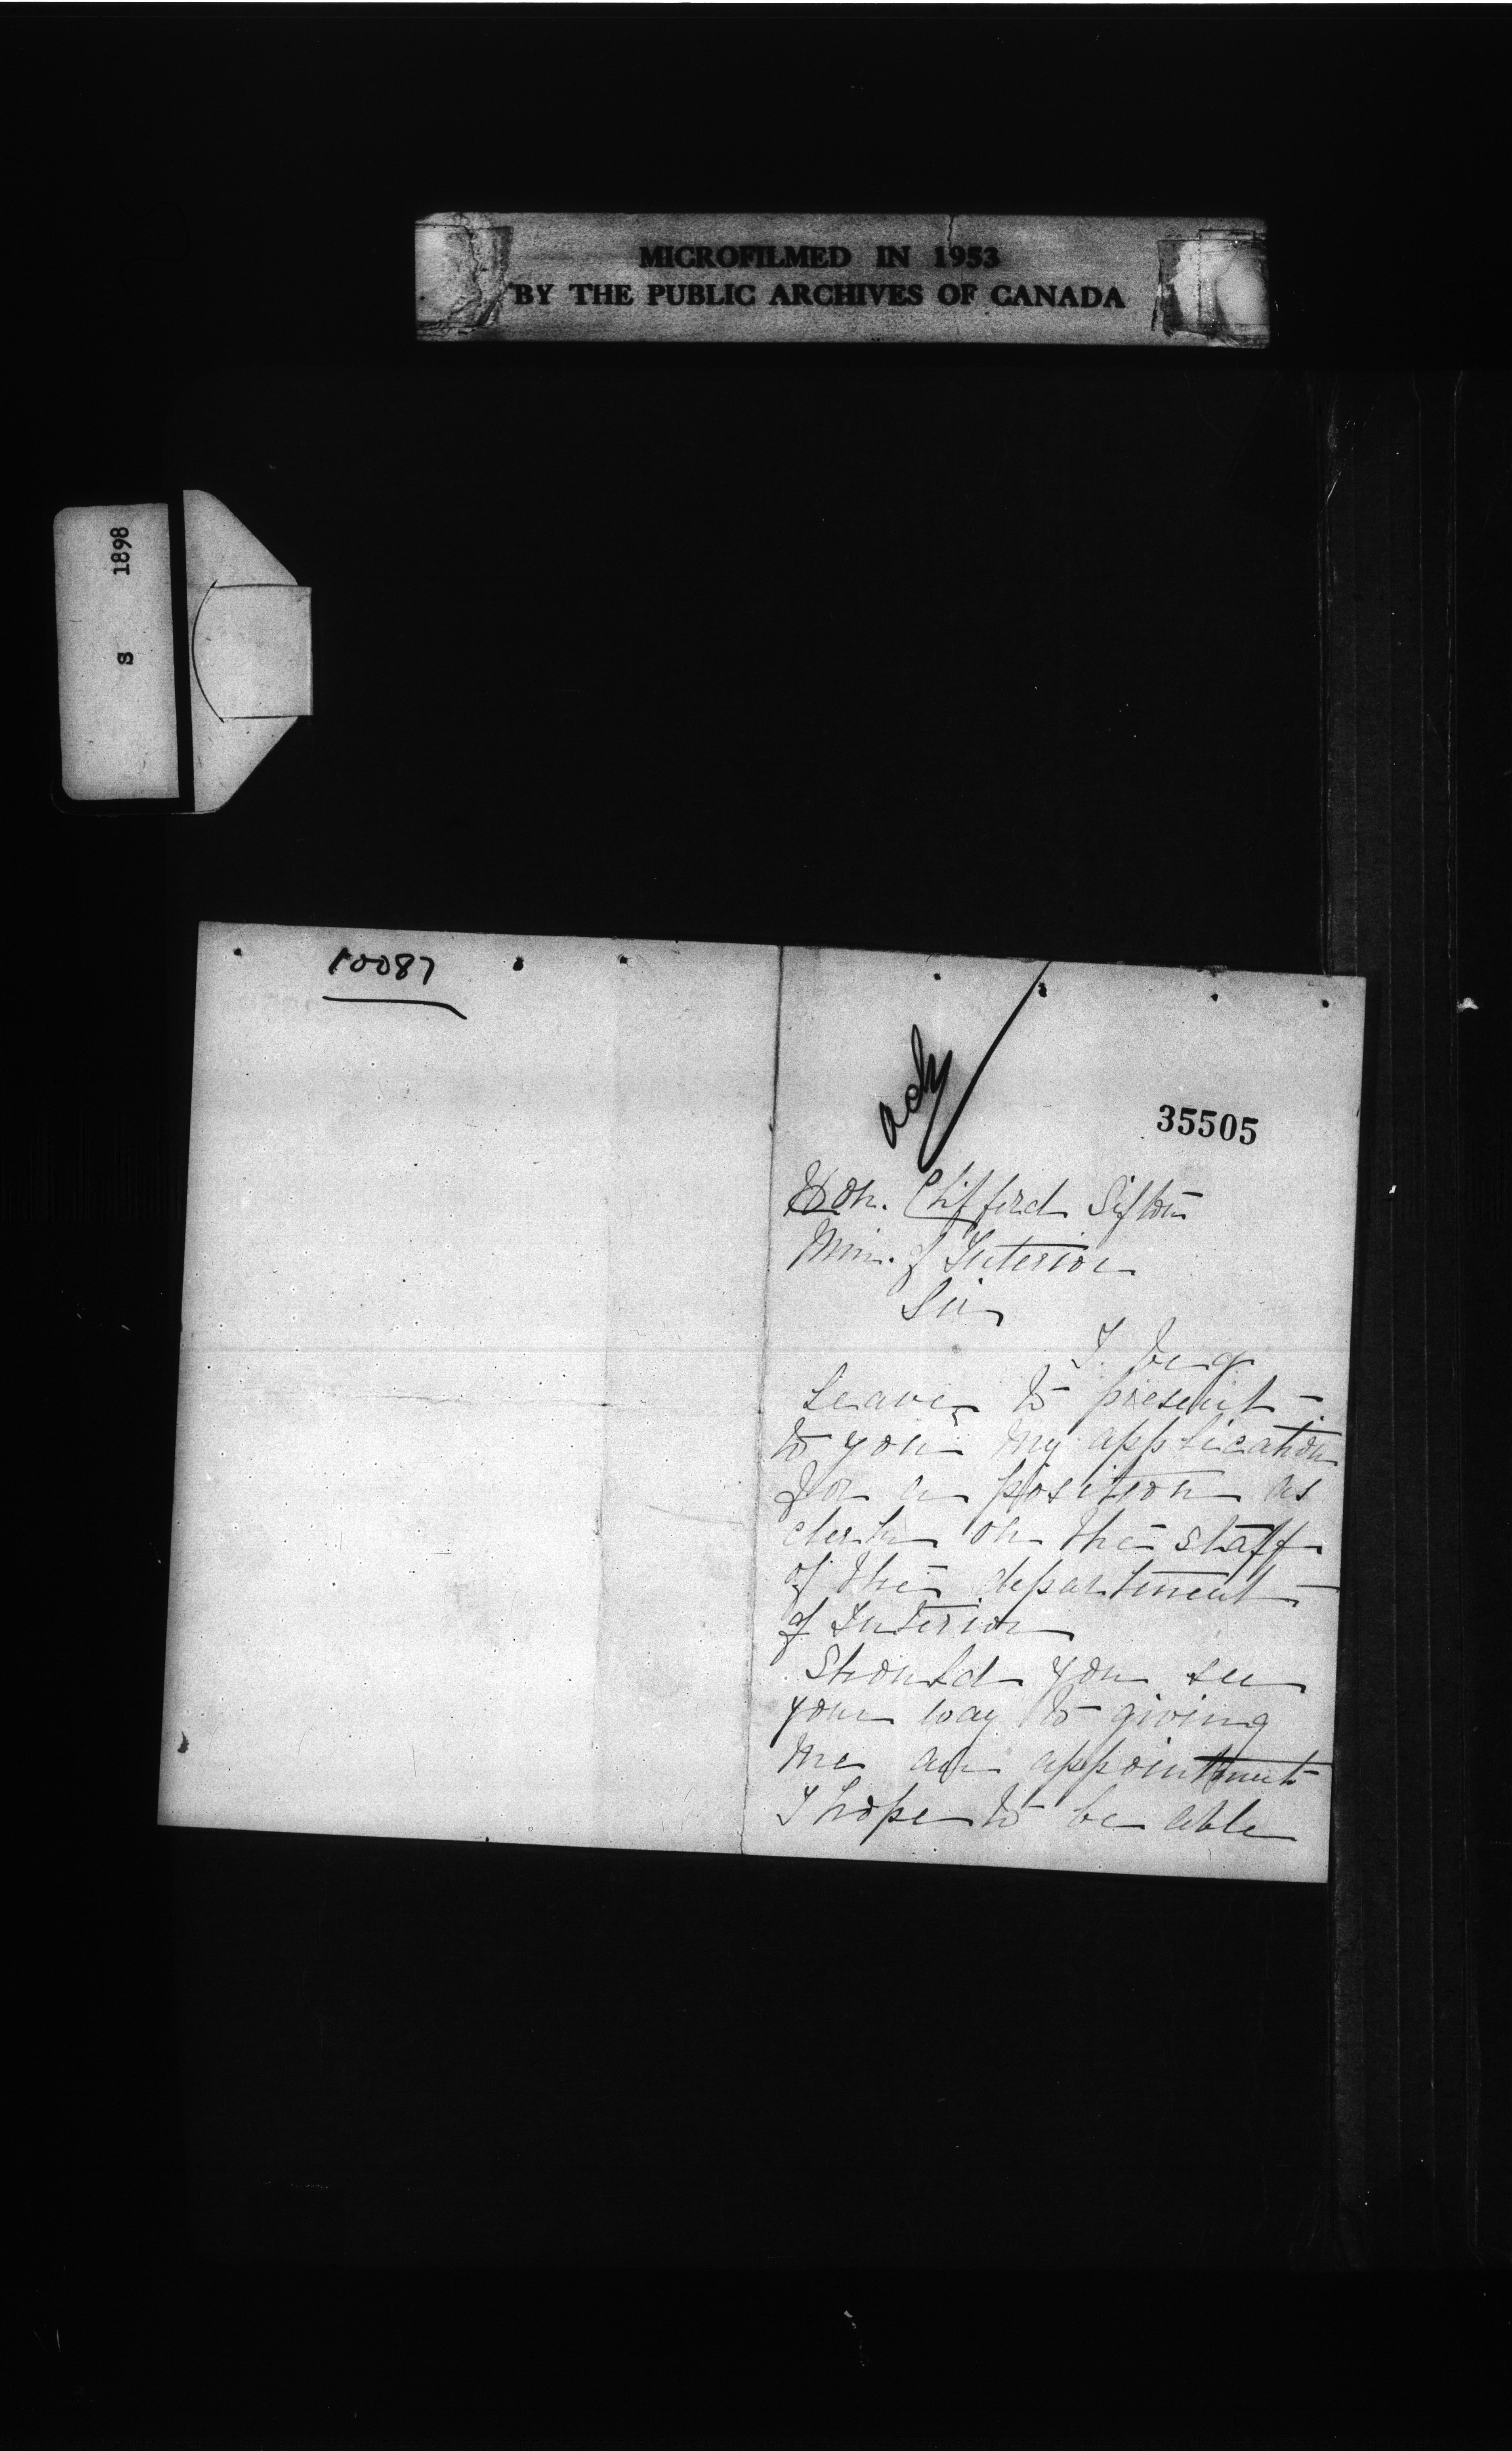 MICROFILMED IN 1953
BY THE PUBLIC ARCHIVES OF CANADA
S 1898
10087
35505
Hon. Clifford Sifton
Min. of Interior
Sir
I beg
leave to present
to you my application
for a position as
clerk on the staff
of the department
of Interior
Should you see
your way to giving
me an appointment
I hope to be able